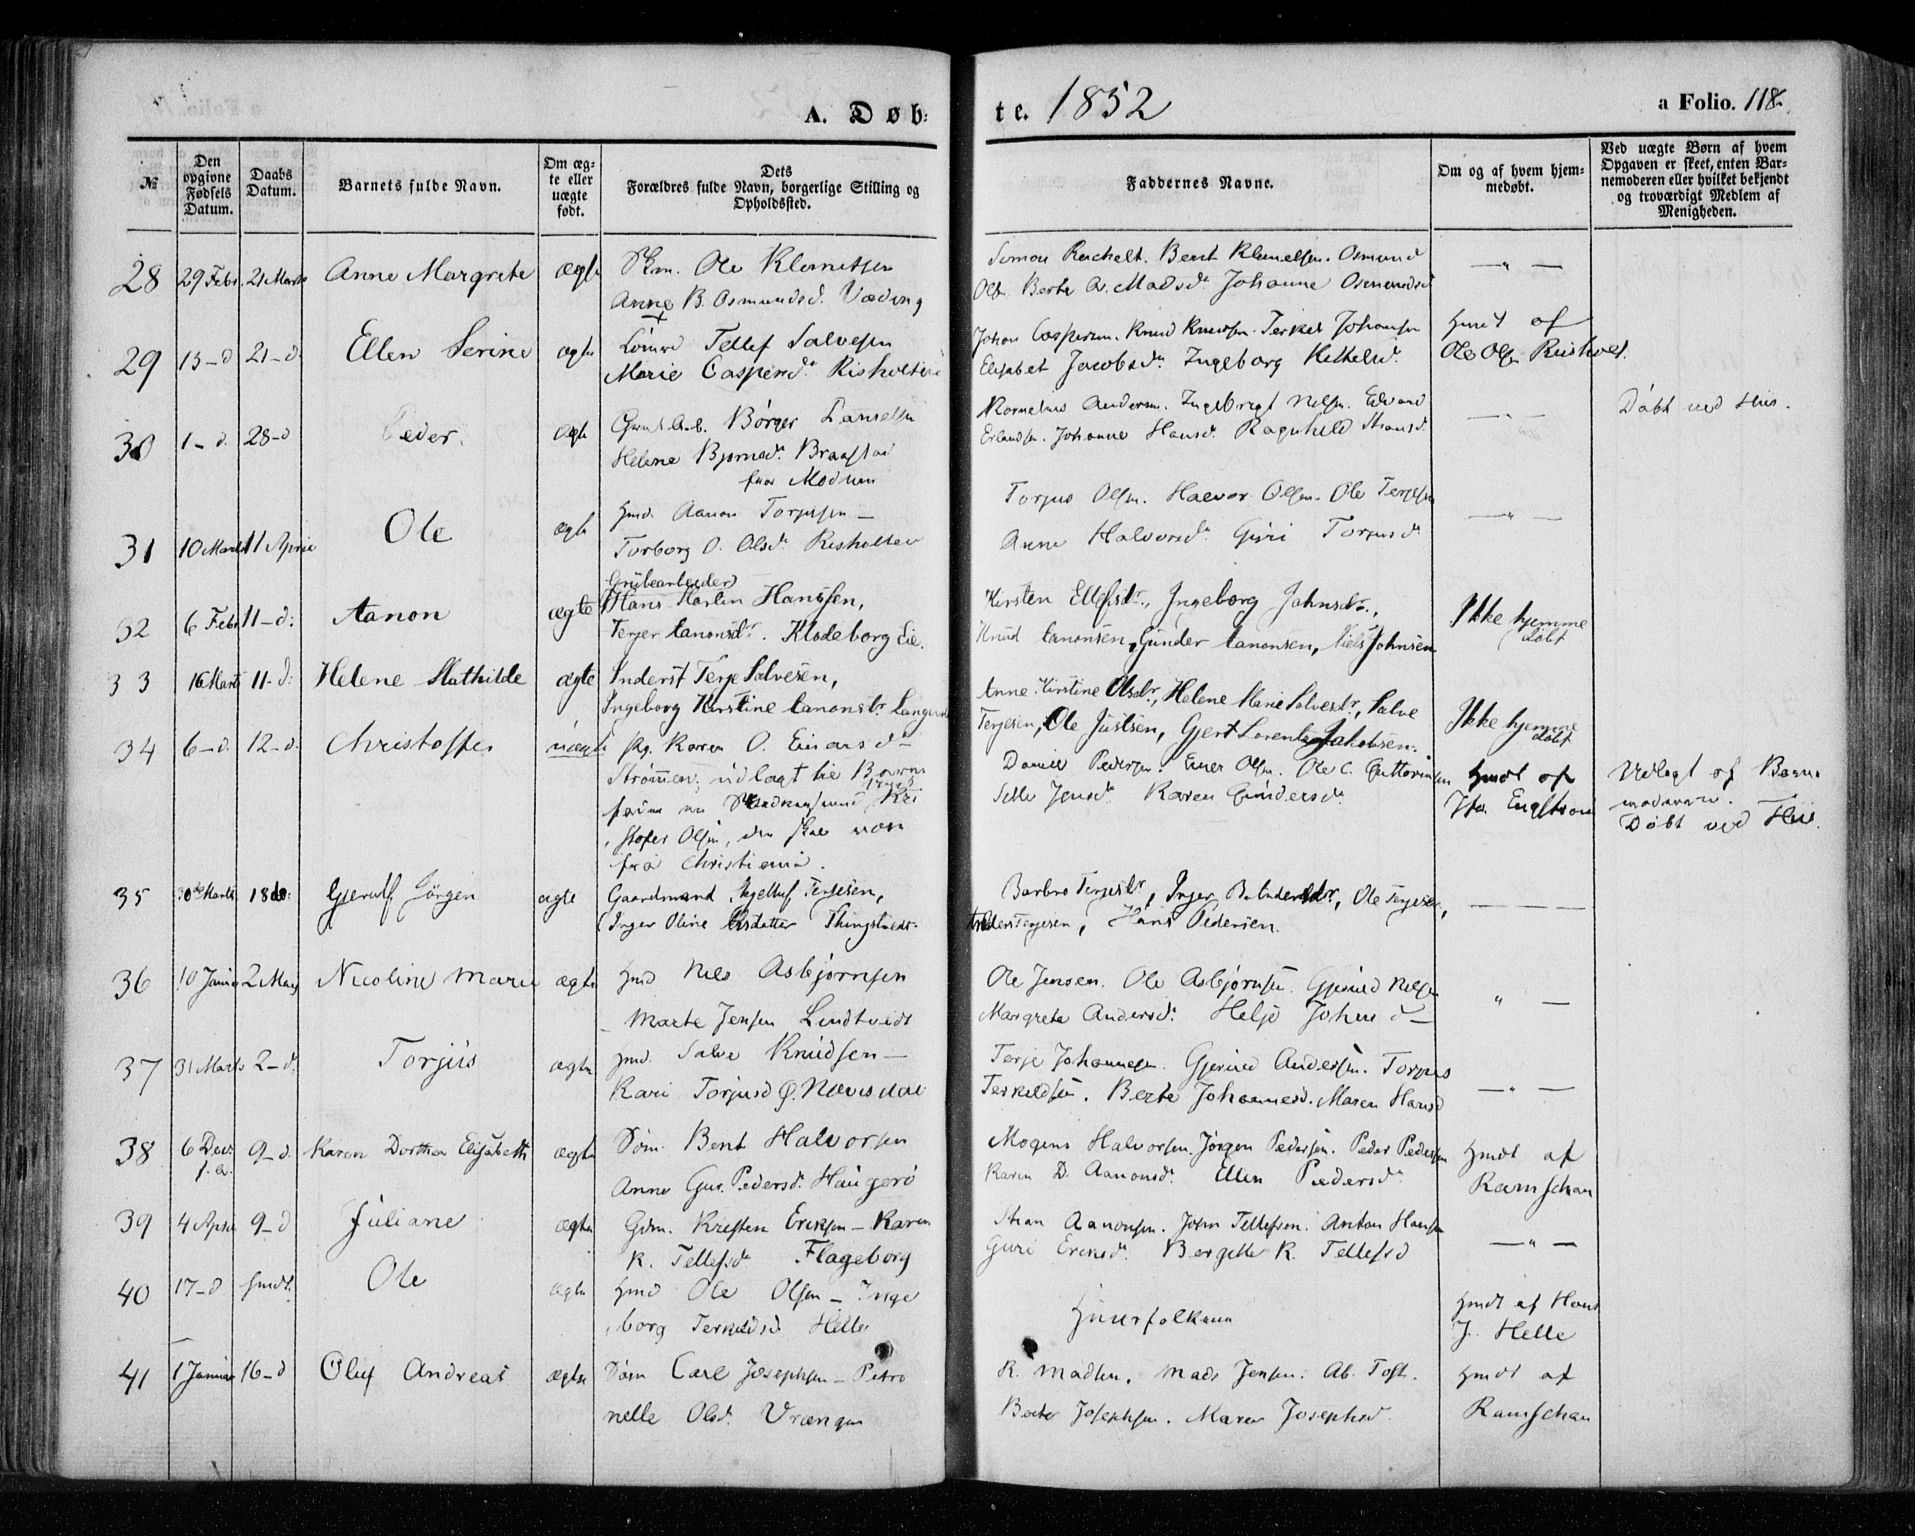 A. Døb-
te. 1852
a Folio. 118.
№
Den opgivne Fødsels Datum.
Daabs Datum.
Barnets fulde Navn.
Om ægte eller uægte født.
Dets Forældres fulde Navn, borgerlige Stilling og Opholdssted.
Faddernes Navne.
Om og af hvem hjemmedøbt.
Ved uægte Børn af hvem Opgaven er skeet, enten Barnemoderen eller hvilket bekjendt og troværdigt Medlem af Menigheden.
28 29 Febr. 21 Marts Anne Margrete ægte Ole Klemetsen
Anne B. Osmundsd.
Bent Klemetsen. Osmund
Olsn. Berte A. Madsd. Johanne Osmundsd
29 15-d 21-d. Ellen Serine ægte Tellef Salvesen
Marie Caspersd. Risholtei
Johan Caspersen. Knud Knudsen. Terkel Johansen
Elisabet Jacobsd. Ingeborg Kettelsd.
Hmdt af
Ole Olsn
30 1-d. 28-d Peder. ægte Børger
Helene Bjørnsd. Braastad
fra Modum
Kornelius Andersn. Ingebregt Nilsn. Edvard
Erlandsn. Johanne Hansd. Ragnhild
Døbt ved His.
31 10 Marts 11 April Ole ægte Hmd. Aanon Torjusen -
Torborg O. Olsd. Risholtei
Torjus Olsn. Halvor Olsn. Ole Terjesn
Anne Halvorsd. Giri Torjusd
32 6 Febr 11-d: Aanon ægte Grubearbeider
Hans Martin Hanssen,
Terjer Aanonsdr. Klodeborg Eie.
Kirsten Ellefsdr., Ingeborg Johnsdr.,
Knud Aanonsen, Gunder Aanonsen, Niels Johnsen
Ikke hjemme
døbt
33 16 Marts 11-d: Helene Mathilde ægte Inderst Terje Salvesen,
Ingeborg Kirstine Aanonsdr.
Anne Kirstine Olsdr., Helene Marie Salvesdr., Salve
Terjesen, Ole Justsen, Gjert Lorentz Jakobsen.
Ikke hjemme
døbt
34 6-d. 12-d. Christoffer uægte Pg. Karen O. Einarsd-
Strømmen; udlagt til Barns
Kri
stofer Olsn, den skal være
fra Christiania.
Daniel Pedersn. Einer Olsn. Ole C. Guttormsen
Jensd. Karen Gundersd.
Hmdt af
Udlagt af Barne
moderen.
Døbt ved His.
35 30 Marts 18 do: Gjerulf Jörgen ægte Gaardmand Ingelluf Terjesen,
Inger Oline Thingstvedt.
Barbro Terjesdr., Inger Ole Terjesen,
Anders Terjesen, Hans Pedersen.
36 10 Januar 2 Mai Nicoline Marie ægte Hmd Nils Asbjørnsen
- Marte Jensen Lindtvedt
Ole Jensen. Ole Asbjørnsn. Gjerud Nilsen
Margrete Andersd. Helje Johnsd-
37 31 Marts 2-d. Torjus ægte Hmd. Salve Knudsen -
Kari Torjusd Ø. Nævisdal
Terje Johannesn. Gjerud Andersn. Torjus
Terkeldsen. Berte Johannesd. Maren Hansd
38 6 Dec. f. a. 9-d. Karen Dorthea Elisabeth ægte Søm. Bent Halvorsen
Anne Gur. Pedersd. Haugerø
Mogens Halvorsen. Jørgen Pedersen. Peder Pedersen
Karen D. Aanonsd. Ellen Pedersd.
Hmdt af
Ramschau
39 4 April 9-d Juliane ægte Gdm. Kresten Eriksen - Karen
K. Tellefsd. Flageborg
Aanonsen. John Tellefsen. Anton Hansen
Guri Eriksd. Bergitte K. Tellefsd
40 17-d hmdt. Ole ægte Hmd Ole Olsen - Inge
borg Terkeldsd. Helle
Huusfolkene
Hmdt af Hans
J. Helle
41 1 Januar 16-d Oluf Andreas ægte Søm Carl Josephsen - Petro
nelle Olsd. Vrængen
K. Madsen. Mads Jensen. Ab. Toft.
Berte Josephsen. Maren Josephsd.
Hmdt af
Ramschau